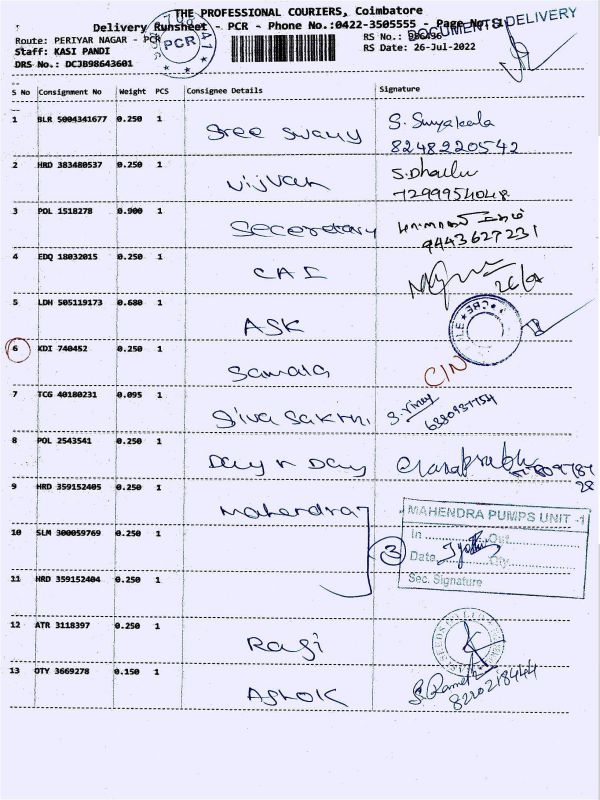 THE PROFESSIONAL COURIERS, Coimbatore
Delivery Runsheet - PCR - Phone No:0422-3505555 - Page No:
DOCUMENTS DELIVERY
Route: PERIYAR NAGAR - PCR
RS No.:
Staff: KASI PANDI
RS Date: 26-Jul-2022
DRS No.: DCJB98643601
PCR
S No Consignment No Weight PCS Consignee Details Signature
1 BLR 5004341677 0.250 1 Sree Swamy S. Suryakala
8248220542
2 HRD 383480537 0.250 1 S.Dhaulu
7299954048
3 POL 1518278 0.900 1 Seceretary
9443627231
4 EDQ 18032015 0.250 1 CAI
5 LDH 505119173 0.680 1 ASK
6 KDI 740452 0.250 1 Samala CIN
7 TCG 40180231 0.095 1 Siva Sakthi S. Vinay
6380937754
8 POL 2543541 0.250 1 Day n Day
9 HRD 359152405 0.250 1 Mahendra
10 SLM 300059769 0.250 1
3
11 HRD 359152404 0.250 1
MAHENDRA PUMPS UNIT -1
In Out
Date Jyothi Qty
Sec. Signature
12 ATR 3118397 0.250 1 Ragi
13 OTY 3669278 0.150 1 ASHOK S. Ramesh
8220218444